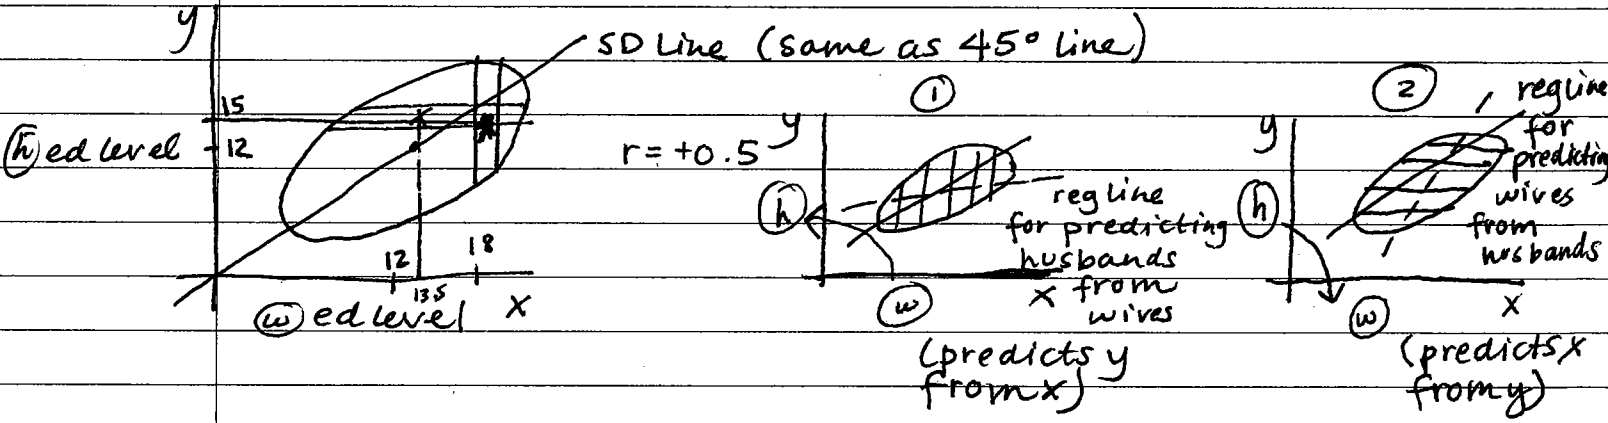 y
SD Line (same as 45° line)
15
ⓗ ed level
12
12
18
13.5
ⓦ ed level
x
r = +0.5
①
y
ⓗ
reg line
for predicting
husbands
from
wives
x
ⓦ
(predicts y
from x)
②
y
ⓗ
reg line
for
predicting
wives
from
husbands
x
ⓦ
(predicts x
from y)